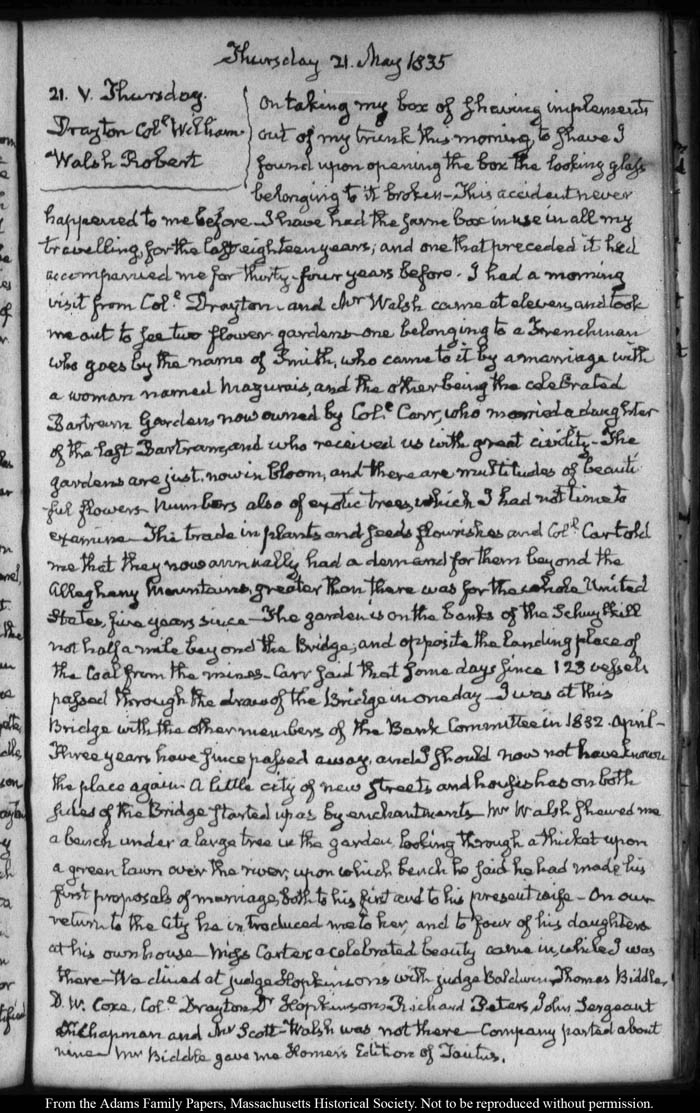 Thursday 21. May 1835
21. V. Thursday.
Drayton Col.l William
Walsh Robert
On taking my box of shaving implements
out of my trunk this morning, to shave I
found upon opening the box the looking glass
belonging to it broken—This accident never
happened to me before—I have had the same box in use in all my
travelling for the last eighteen years; and one that preceded it had
accompanied me for thirty-four years before. I had a morning
visit from Col.l Drayton—and Mr Walsh came at eleven, and took
me out to see two flower gardens—one belonging to a Frenchman
who goes by the name of Smith, who came to it by a marriage with
a woman named Mazurais, and the other being the celebrated
Bartram Garden, now owned by Col.l Carr, who married a daughter
of the last Bartram, and who received us with great civility—The
gardens are just now in bloom, and there are multitudes of beauti-
ful flowers—Numbers also of exotic trees, which I had not time to
examine—The trade in plants and seeds flourishes and Col.l Carr told
me that they now annually had a demand for them beyond the
Alleghany Mountains, greater than there was for the whole United
States, five years since—The garden is on the banks of the Schuylkill
not half a mile beyond the Bridge, and opposite the landing place of
the Coal from the mines—Carr said that some days since 123 vessels
passed through the draw of the Bridge in one day—I was at this
Bridge with the other members of the Bank Committee in 1832. April—
Three years have since passed away, and I should now not have known
the place again. A little city of new streets and houses has on both
sides of the Bridge started up as by enchantment—Mr Walsh shewed me
a bench under a large tree in the garden, looking through a thicket upon
a green lawn over the river, upon which bench he said he had made his
first proposals of marriage, both to his first and to his present wife—On our
return to the City he introduced me to her, and to four of his daughters
at his own house—Miss Carter a celebrated beauty came in, while I was
there—We dined at judge Hopkinson's with judge Baldwin, Thomas Biddle,
D. W. Coxe, Col.l Drayton, Dr Hopkinson, Richard Peters, John Sergeant
Dr Chapman and Mr Scott—Walsh was not there—Company parted about
nine—Mr Biddle gave me Homer's Edition of Tacitus.
From the Adams Family Papers, Massachusetts Historical Society. Not to be reproduced without permission.